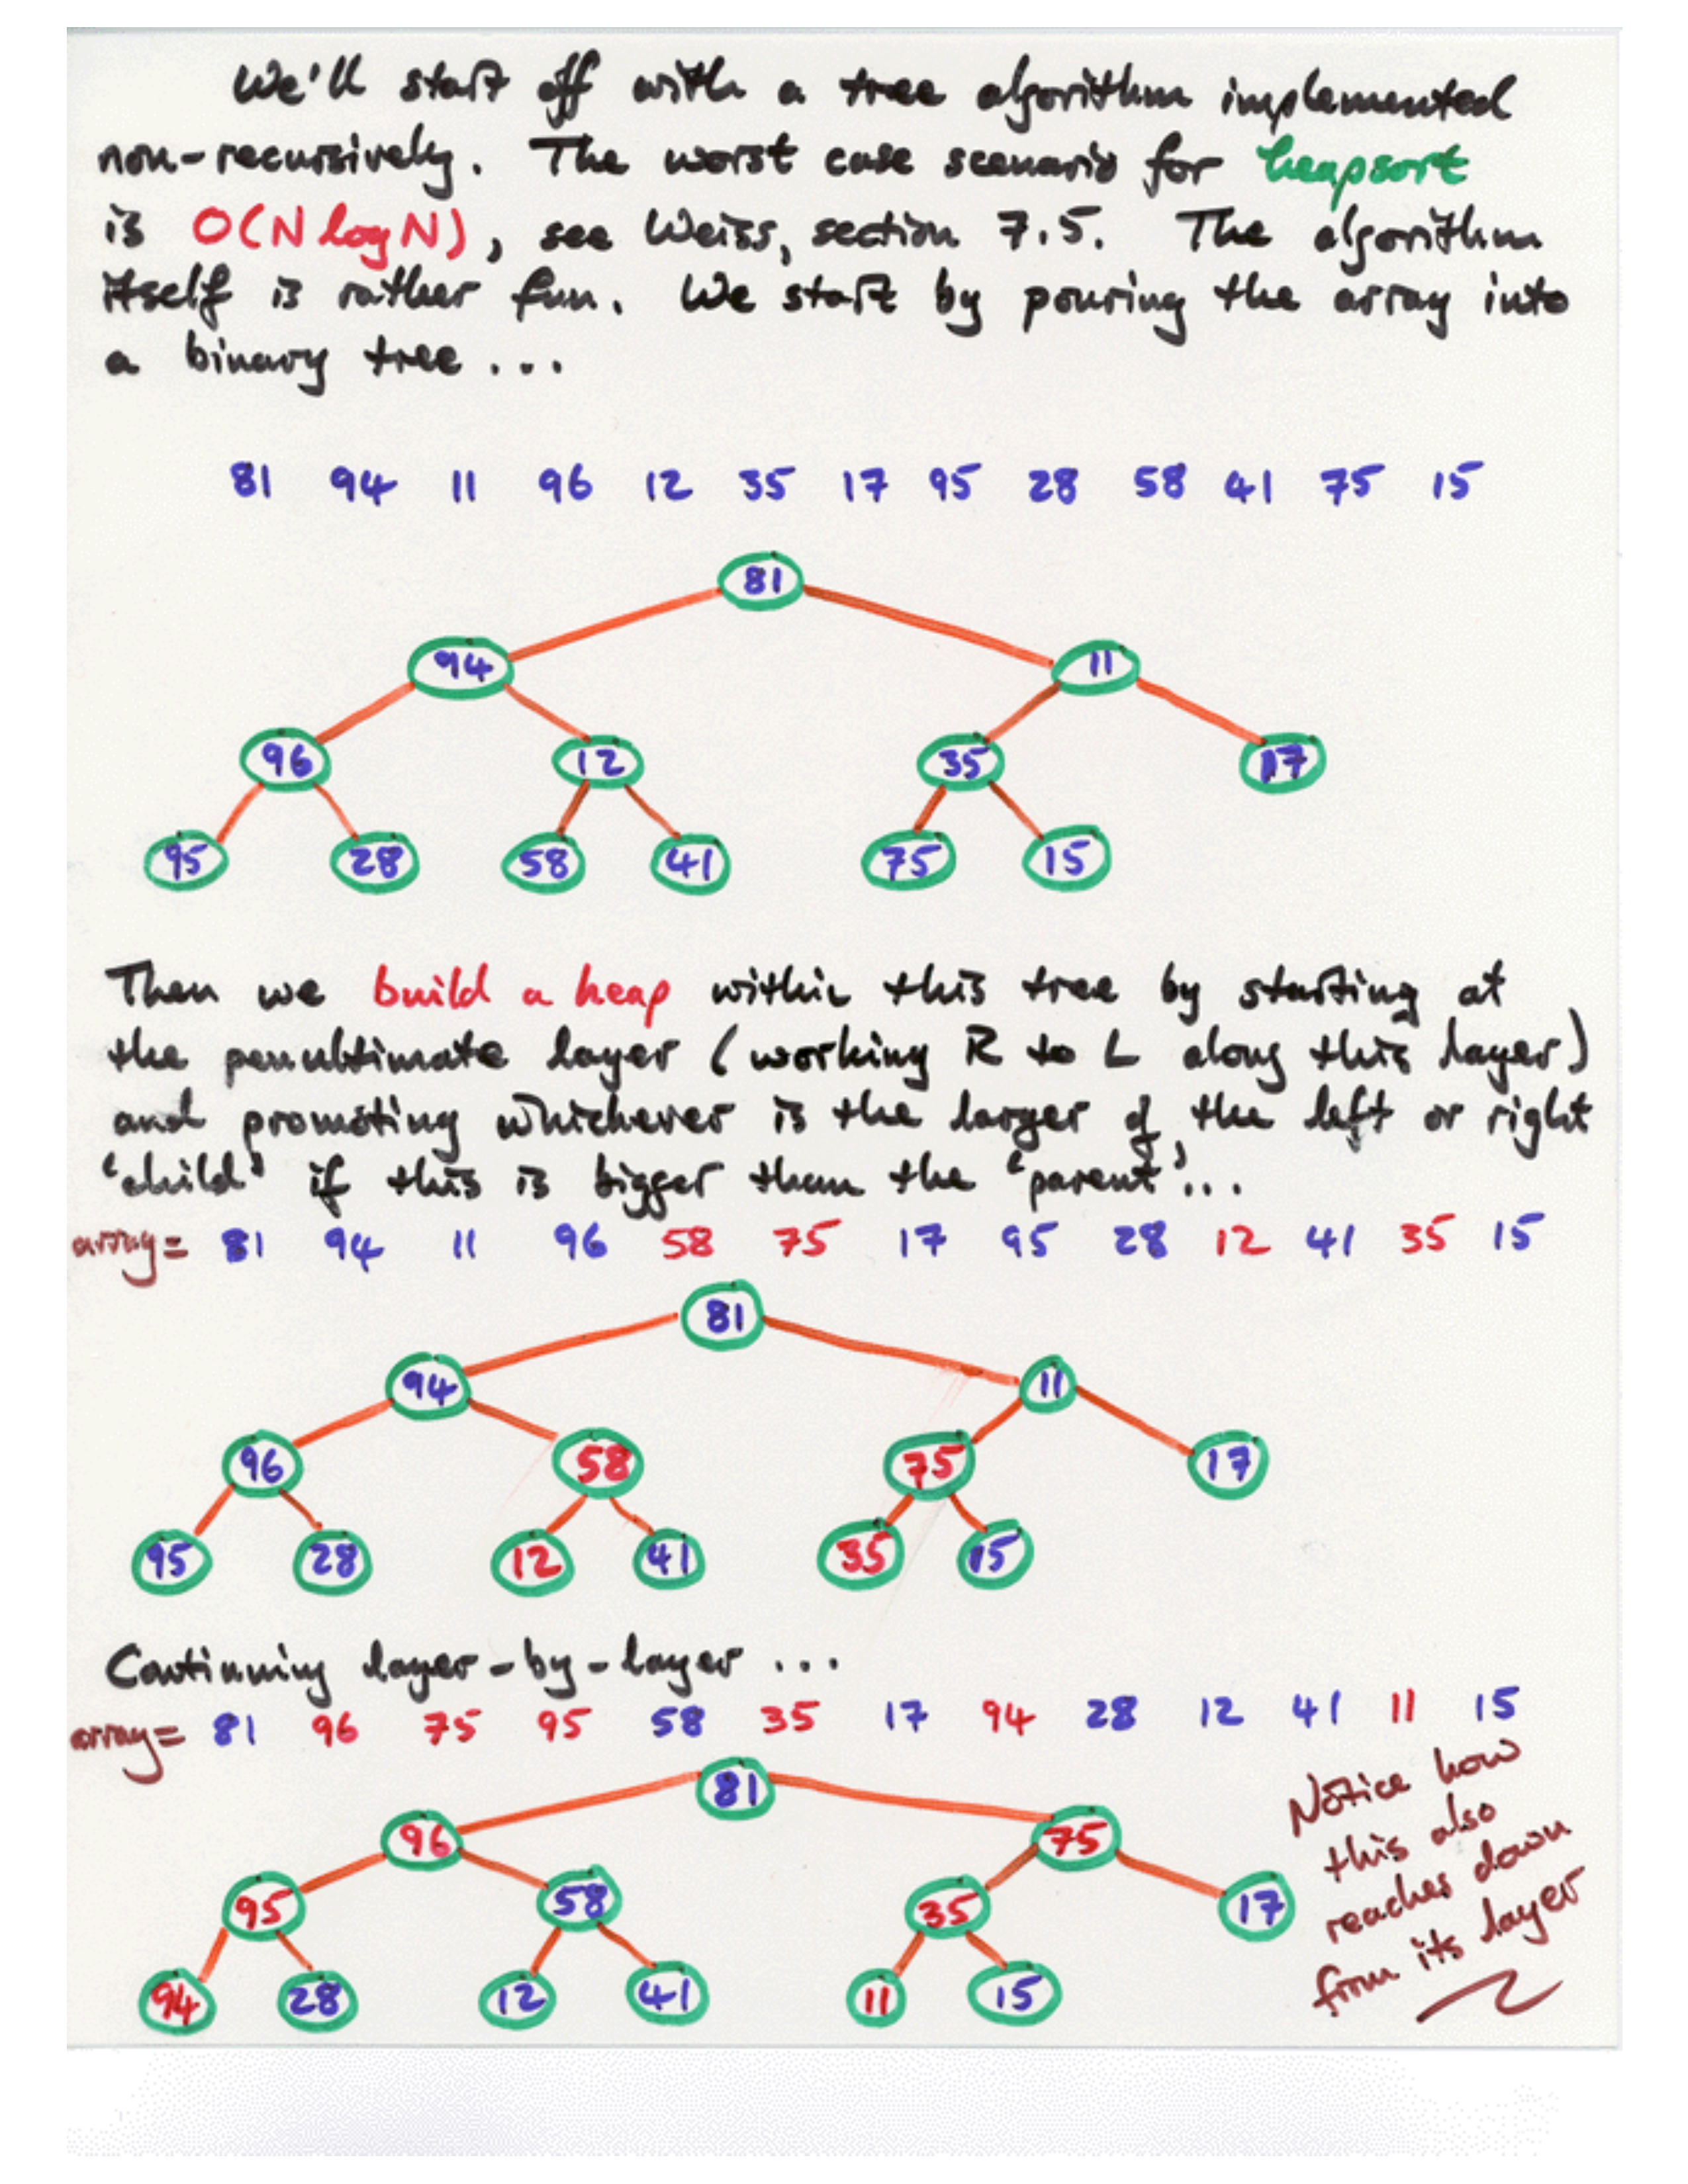 We'll start off with a tree algorithm implemented
non-recursively. The worst case scenario for heapsort
is O(N log N), see Weiss, section 7.5. The algorithm
itself is rather fun. We start by pouring the array into
a binary tree ...
81 94 11 96 12 35 17 95 28 58 41 75 15
81
94 11
96 12 35 17
95 28 58 41 75 15
Then we build a heap within this tree by starting at
the penultimate layer (working R to L along this layer)
and promoting whichever is the larger of the left or right
'child' if this is bigger than the 'parent'...
array= 81 94 11 96 58 75 17 95 28 12 41 35 15
81
94 11
96 58 75 17
95 28 12 41 35 15
Continuing layer-by-layer ...
array= 81 96 75 95 58 35 17 94 28 12 41 11 15
81
96 75
95 58 35 17
94 28 12 41 11 15
Notice how
this also
reaches down
from its layer